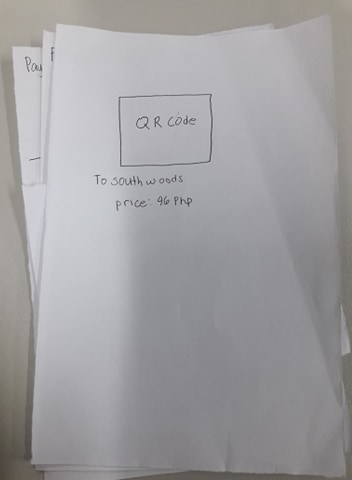 Pay
QR Code
To southwoods
price: 96 Php